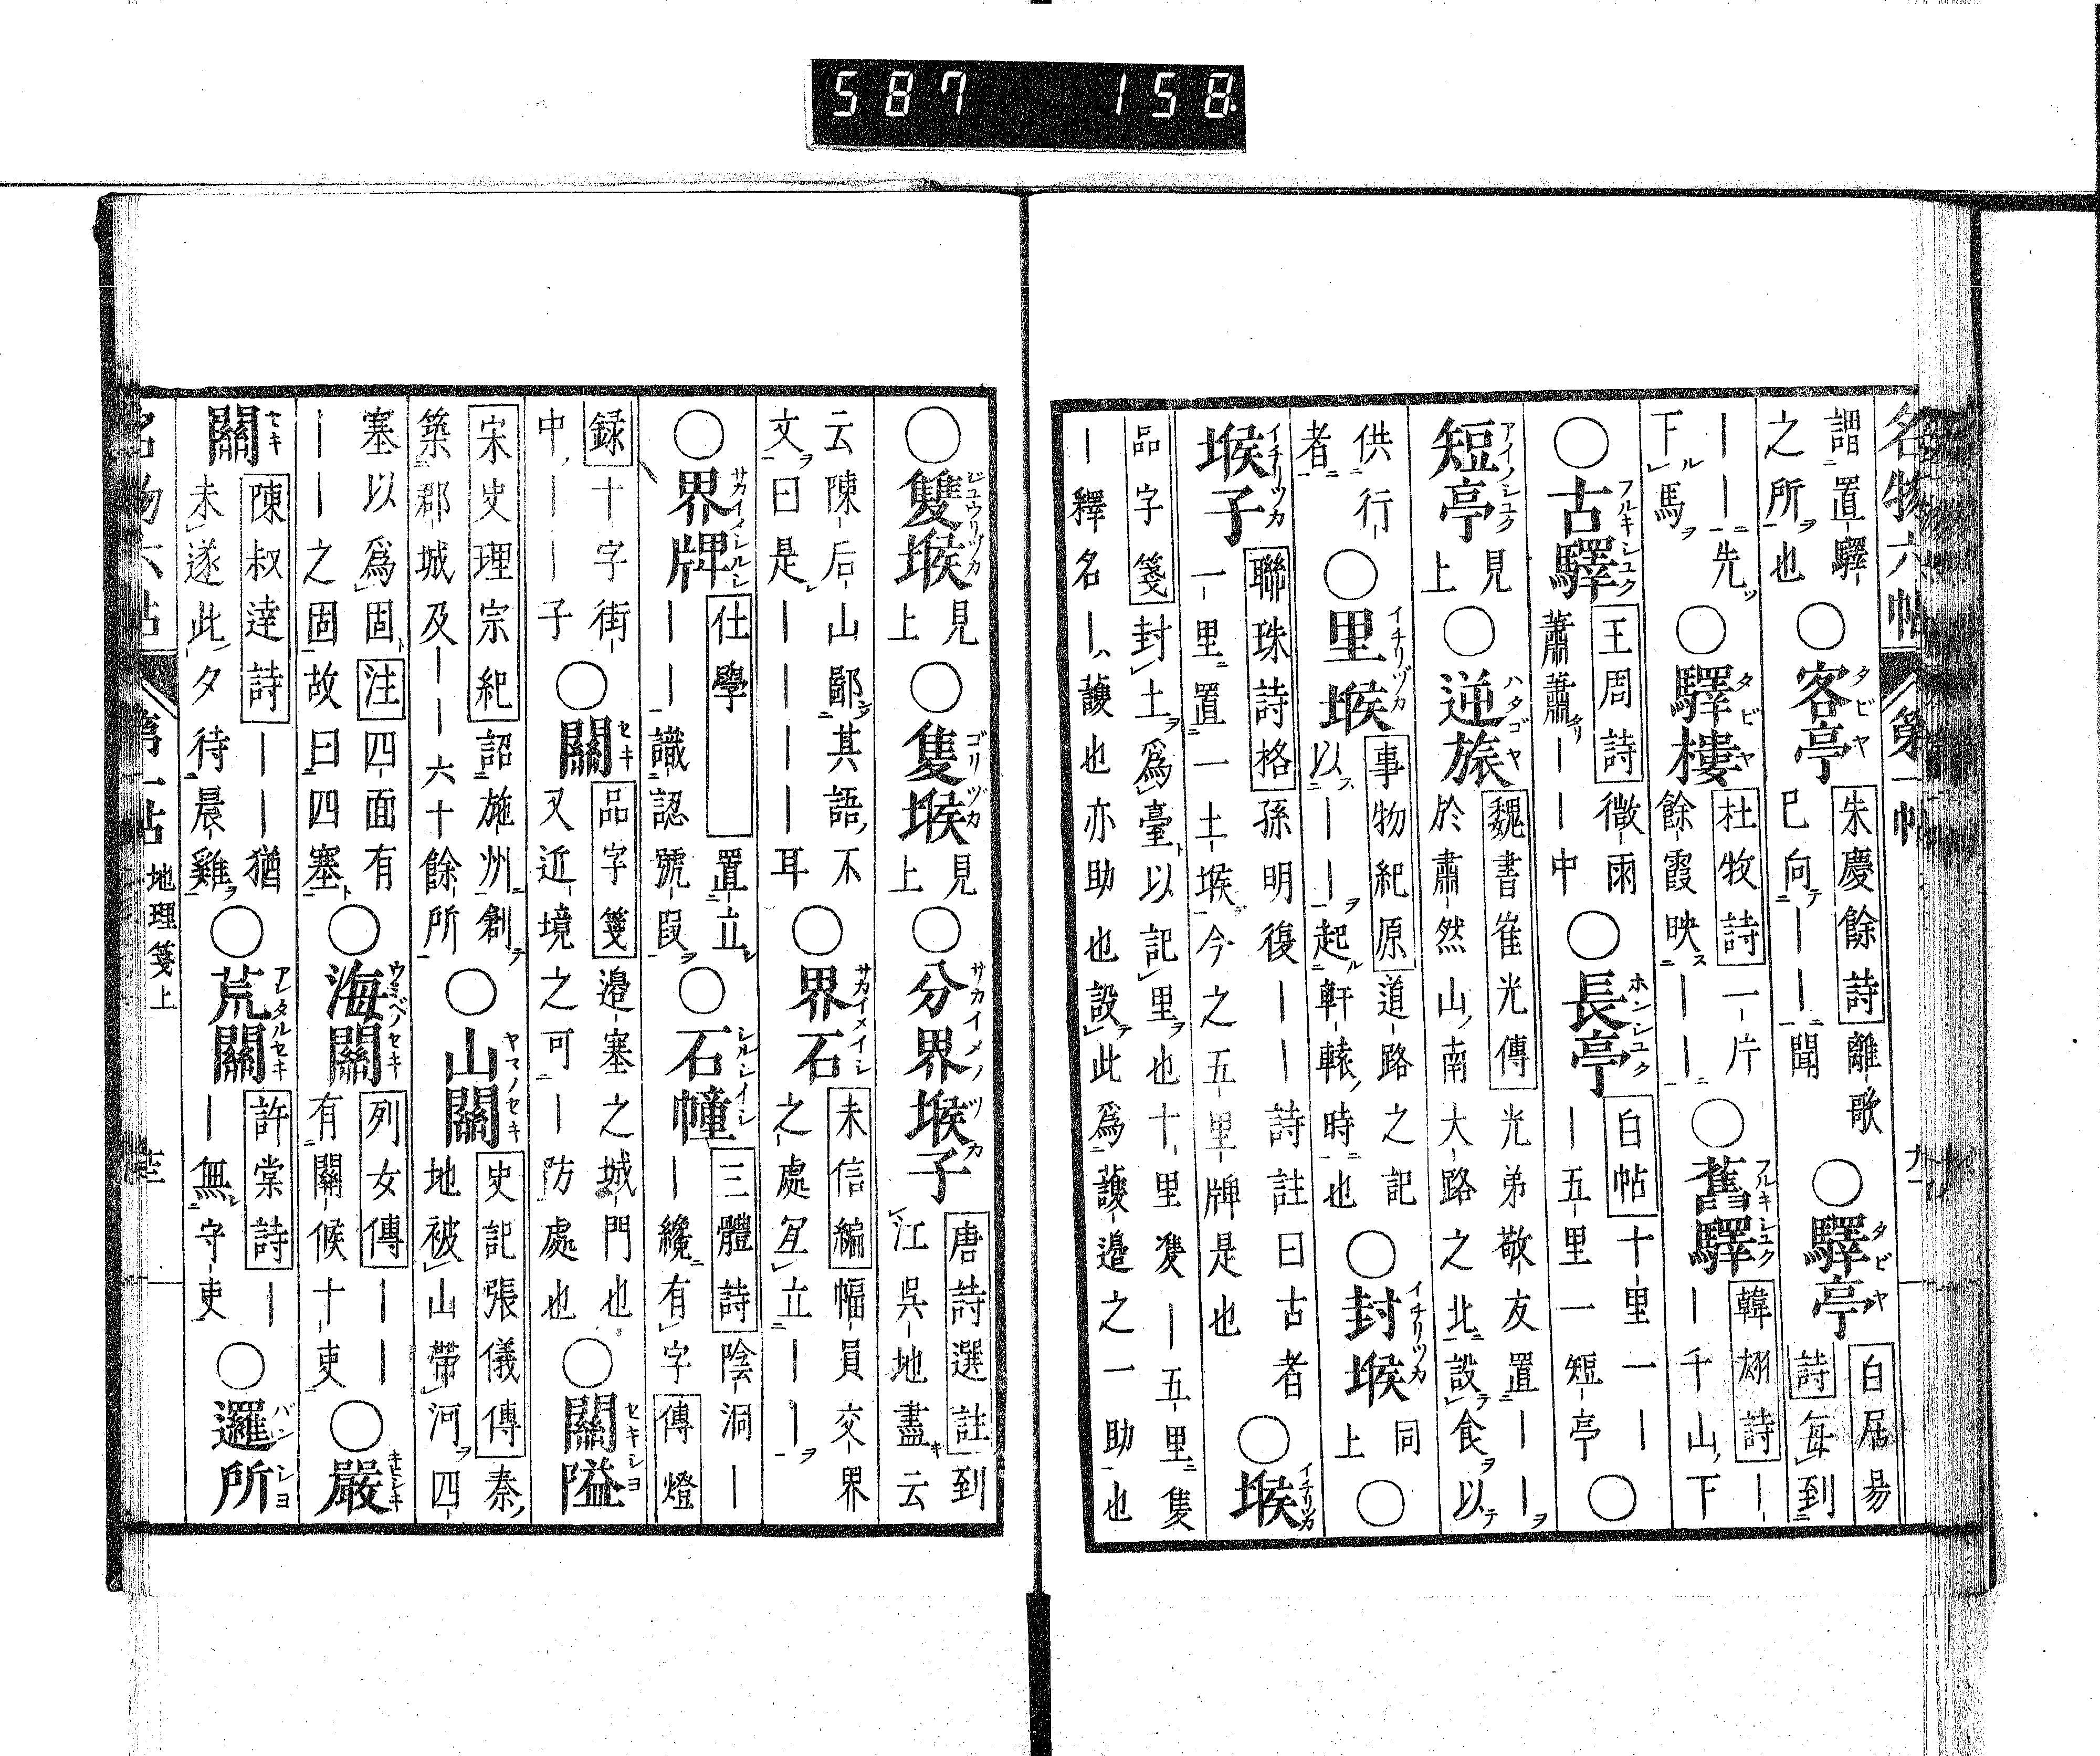 587 158.
名物六帖 第一帖
謂置驛之所也 ○客亭 タビヤ 朱慶餘詩 離歌已向――聞 ○驛亭 タビヤ 白居易詩 每到
――先下馬 ○驛樓 タビヤ 杜牧詩 一片餘霞映―― ○舊驛 フルキシユク 韓翃詩 ――千山下
○古驛 フルキシユク 王周詩 微雨蕭蕭――中 ○長亭 ホンシユク 白帖 十里一――五里一短亭 ○
短亭 アイノシユク 見上 ○逆旅 ハタゴヤ 魏書崔光傳 光弟敬友置――於肅然山南大路之北設食以
供行者 ○里堠 イチリヅカ 事物紀原 道路之記以――起軒轅時也 ○封堠 イチリヅカ 同上 ○
堠子 イチリヅカ 聯珠詩格 孫明復――詩註曰古者一里置一土堠今之五里牌是也 ○堠 イチリヅカ
品字箋 封土爲臺以記里也十里雙―五里隻―釋名―護也亦助也設此爲護邉之一助也
○雙堠 ジユウリヅカ 見上 ○隻堠 ゴリヅカ 見上 ○分界堠子 サカイメノツカ 唐詩選註 到江呉地盡云
云陳后山鄙其語不文曰是――――耳 ○界石 サカイメイシ 未信編 幅員交界之處冝立――
○界牌 サカイメシルシ 仕學 置立――識認號叚 ○石幢 シルシイシ 三體詩 陰洞――纔有字 傳燈
録 十字街中――子 ○關 セキ 品字箋 邉塞之城門也又近境之可―防處也 ○關隘 セキシヨ
宋史理宗紀 詔施州創築郡城及――六十餘所 ○山關 ヤマノセキ 史記張儀傳 秦地被山帶河四
塞以爲固 注 四面有――之固故曰四塞 ○海關 ウミベノセキ 列女傳 ――有關候十吏 ○嚴 キビシキ
關 セキ 陳叔達詩 ――猶未遂此夕待晨雞 ○荒關 アレタルセキ 許棠詩 ――無守吏 ○邏所 バンシヨ
名物六帖 第一帖 地理箋上